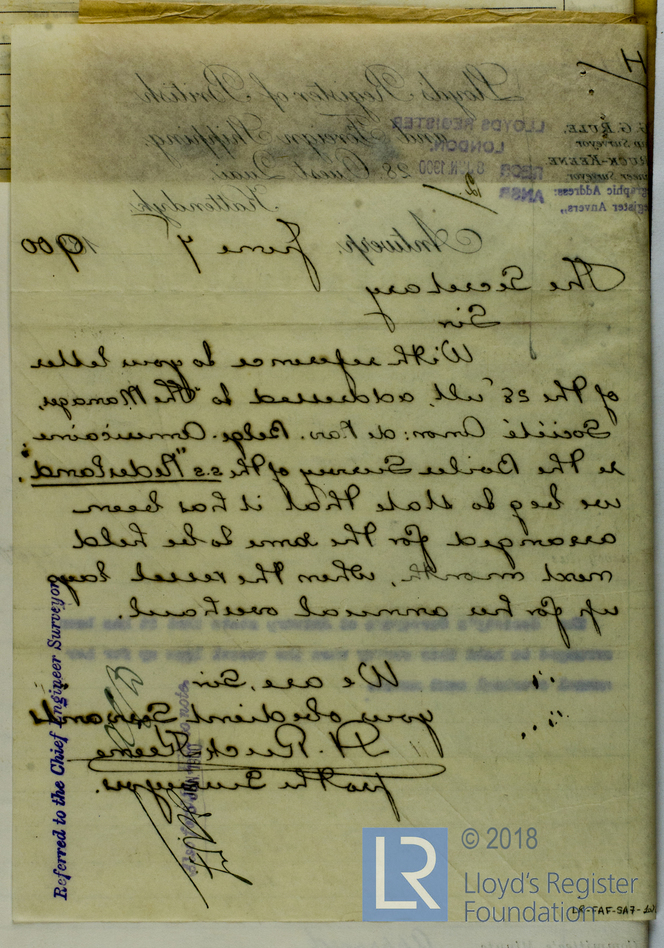 Lloyd's Register of British
and Foreign Shipping.
28, Ouest Quai
Kattendyk.
G. RULE.
Surveyor
RUCK-KEENE
Surveyor
graphic Address:
Register Anvers,,
LLOYDS REGISTER
LONDON
RECD
ANSD
Antwerp. June 7 1900
The Secretary
Sir
With reference to your letter
of the 28 ult. addressed to "The Manager,
Société Anon: de Nav. Belge-Americaine"
re the Boiler Survey of the s.s "Nederland"
we beg to state that it has been
arranged for the same to be held
next month, when the vessel lays
up for her annual overhaul.
We are, Sir
your obedient Servants
H. Ruck Keene
for the Surveyors.
Referred to the Chief Engineer Surveyor
© 2018
LR
Lloyd's Register
Foundation